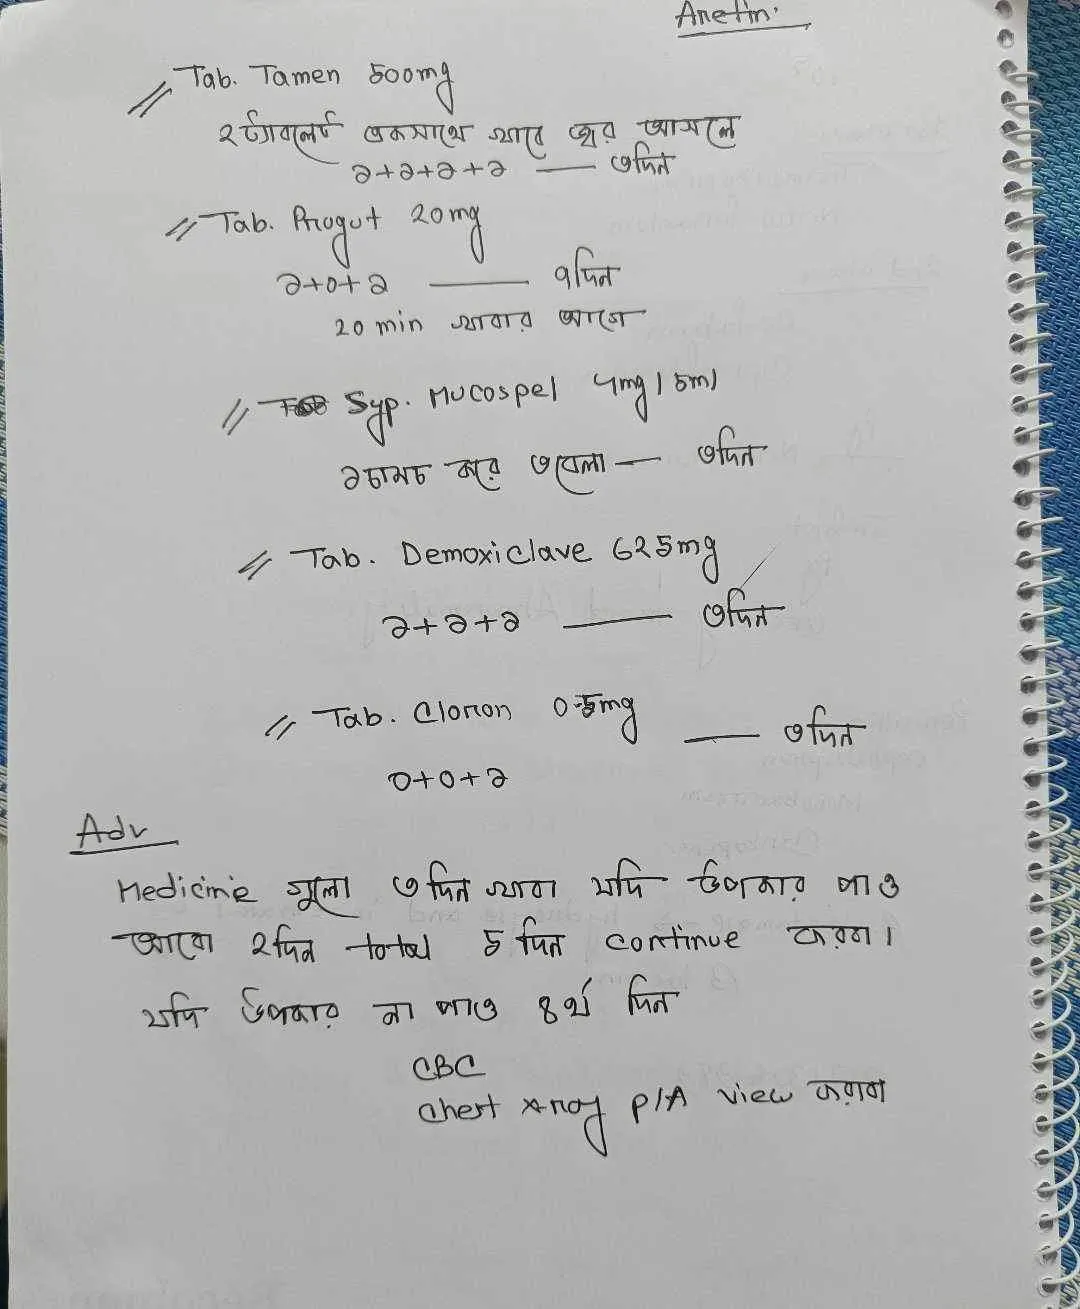 Aretin.
Tab. Tamen 500mg
২ট্যাবলেট একসাথে খাবে জ্বর আসলে
১+১+১+১ — ৩দিন
Tab. Progut 20mg
১+০+১ — ৭দিন
20 min খাবার আগে
Syp. Mucospel 4mg/5ml
১চামচ করে ৩বেলা — ৩দিন
Tab. Demoxiclave 625mg
১+১+১ — ৩দিন
Tab. Clonon 0.5mg — ৩দিন
০+০+১
Adv
Medicine গুলো ৩ দিন খাবা যদি উপকার পাও
আরো ২দিন total 5 দিন continue করবা।
যদি উপকার না পাও ৪র্থ দিন
CBC
Chest xray P/A view করাবা